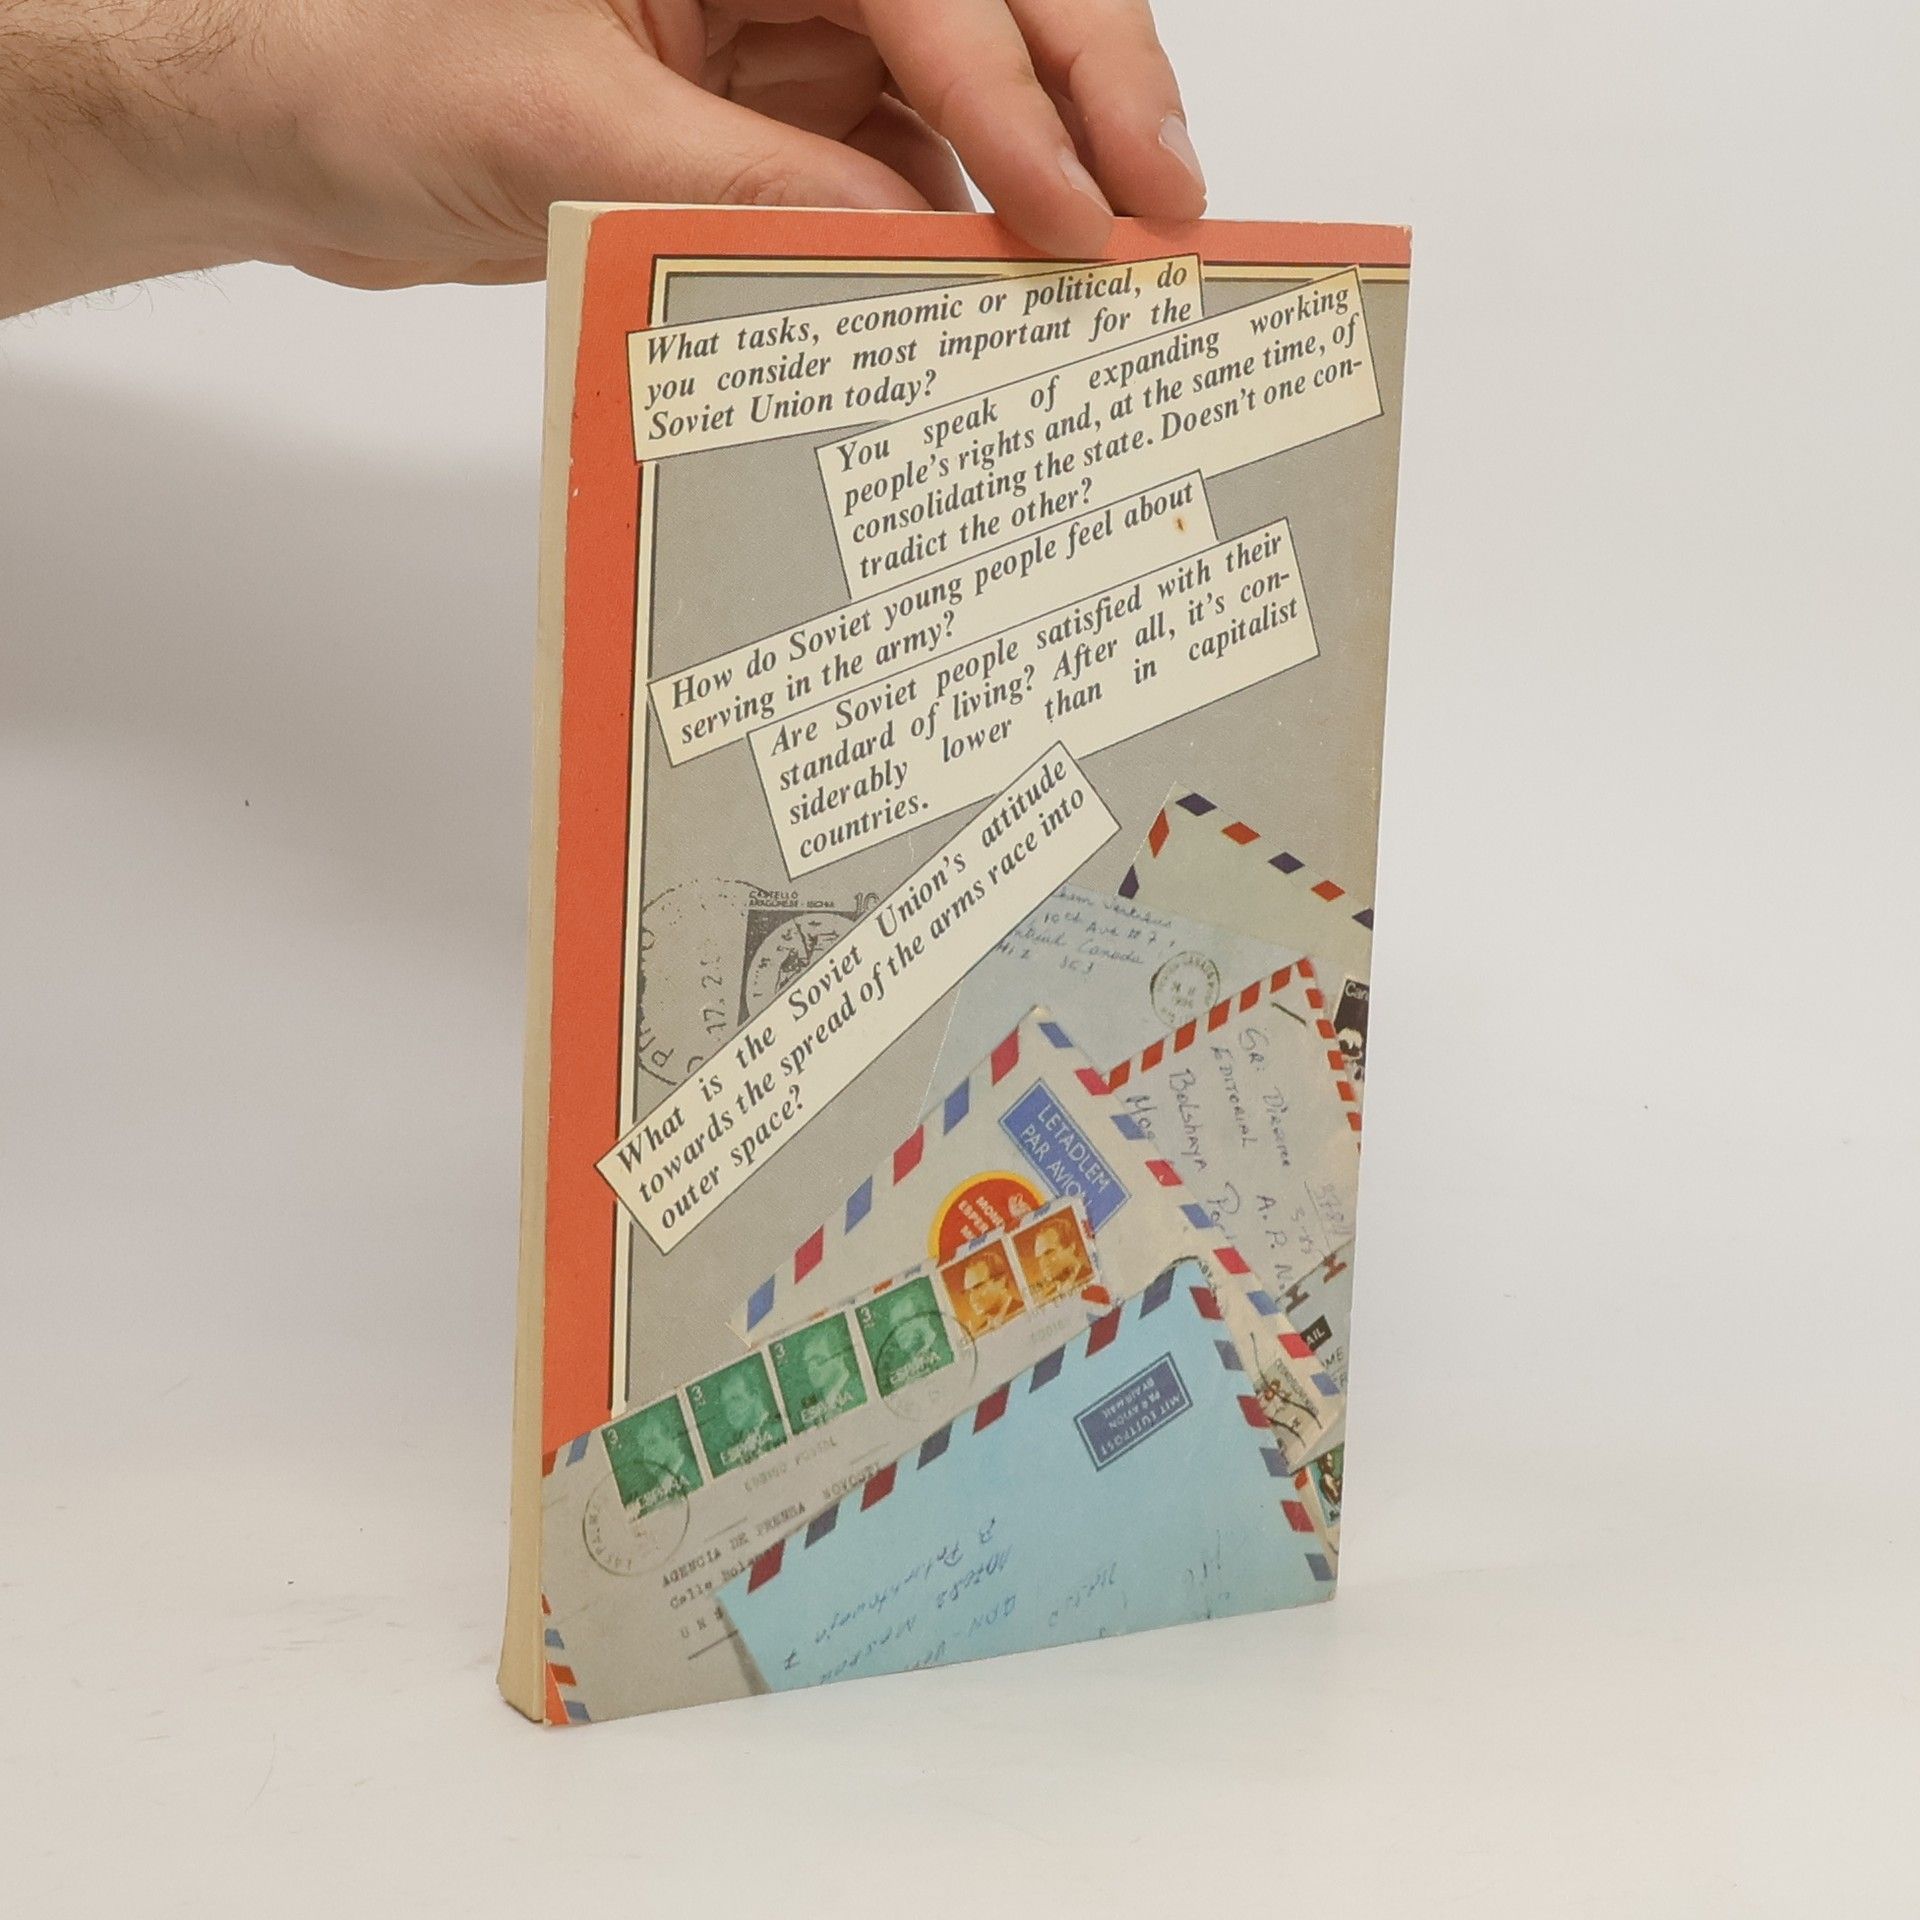 What tasks, economic or political, do
you consider most important for the
Soviet Union today?
You speak of expanding working
people's rights and, at the same time, of
consolidating the state. Doesn't one con-
tradict the other?
How do Soviet young people feel about
serving in the army?
Are Soviet people satisfied with their
standard of living? After all, it's con-
siderably lower than in capitalist
countries.
What is the Soviet Union's attitude
towards the spread of the arms race into
outer space?
CASTELLO
ARAGONESE - ISCHIA
17.2
10th Ave # 7,
Canada
LETADLEM
PAR AVION
Bolshaya
EDITORIAL
A. P. N.
3 ESPAÑA
3 ESPAÑA
3 ESPAÑA
3 ESPAÑA
MIT LUFTPOST
PAR AVION
BY AIR MAIL
AGENCIA DE PRENSA NOVOSTI
Calle